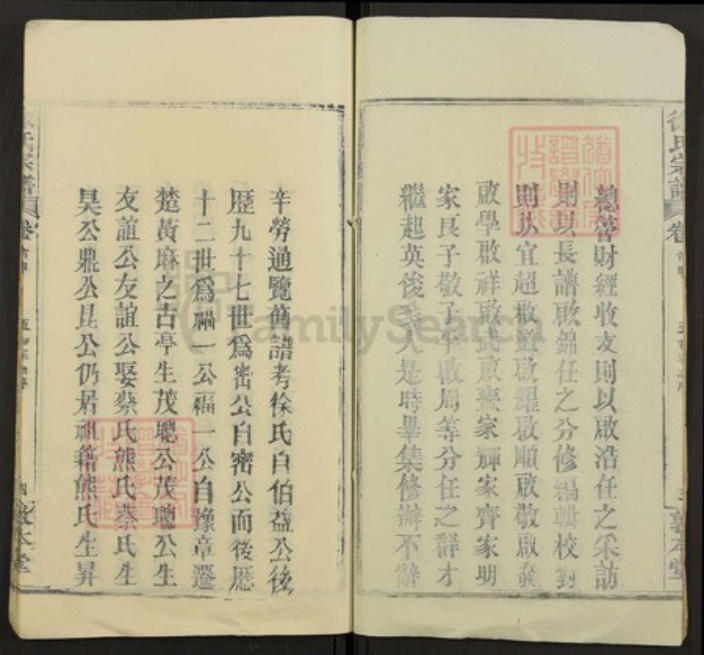 徐氏宗譜
總啓財經收支則以啟浩任之采訪
則以長譜啟錦任之分修編輯校對
則以宜超啟道啟耀啟順啟敬啟發
啟學啟祥啟武啟堯家輝家齊家明
家良子敬子平啟周等分任之群才
繼起英俊為人是時畢集修辦不辭
敦本堂
辛勞通覽舊譜考徐氏自伯益公後
歷九十七世為密公自密公而後歷
十二世為福一公福一公自豫章遷
楚黃麻之古亭生茂聰公茂聰公生
友誼公友誼公娶蔡氏熊氏蔡氏生
昊公鼎公昆公仍居祖籍熊氏生昇
氏宗譜
卷首
五
四
敦本堂
FamilySearch